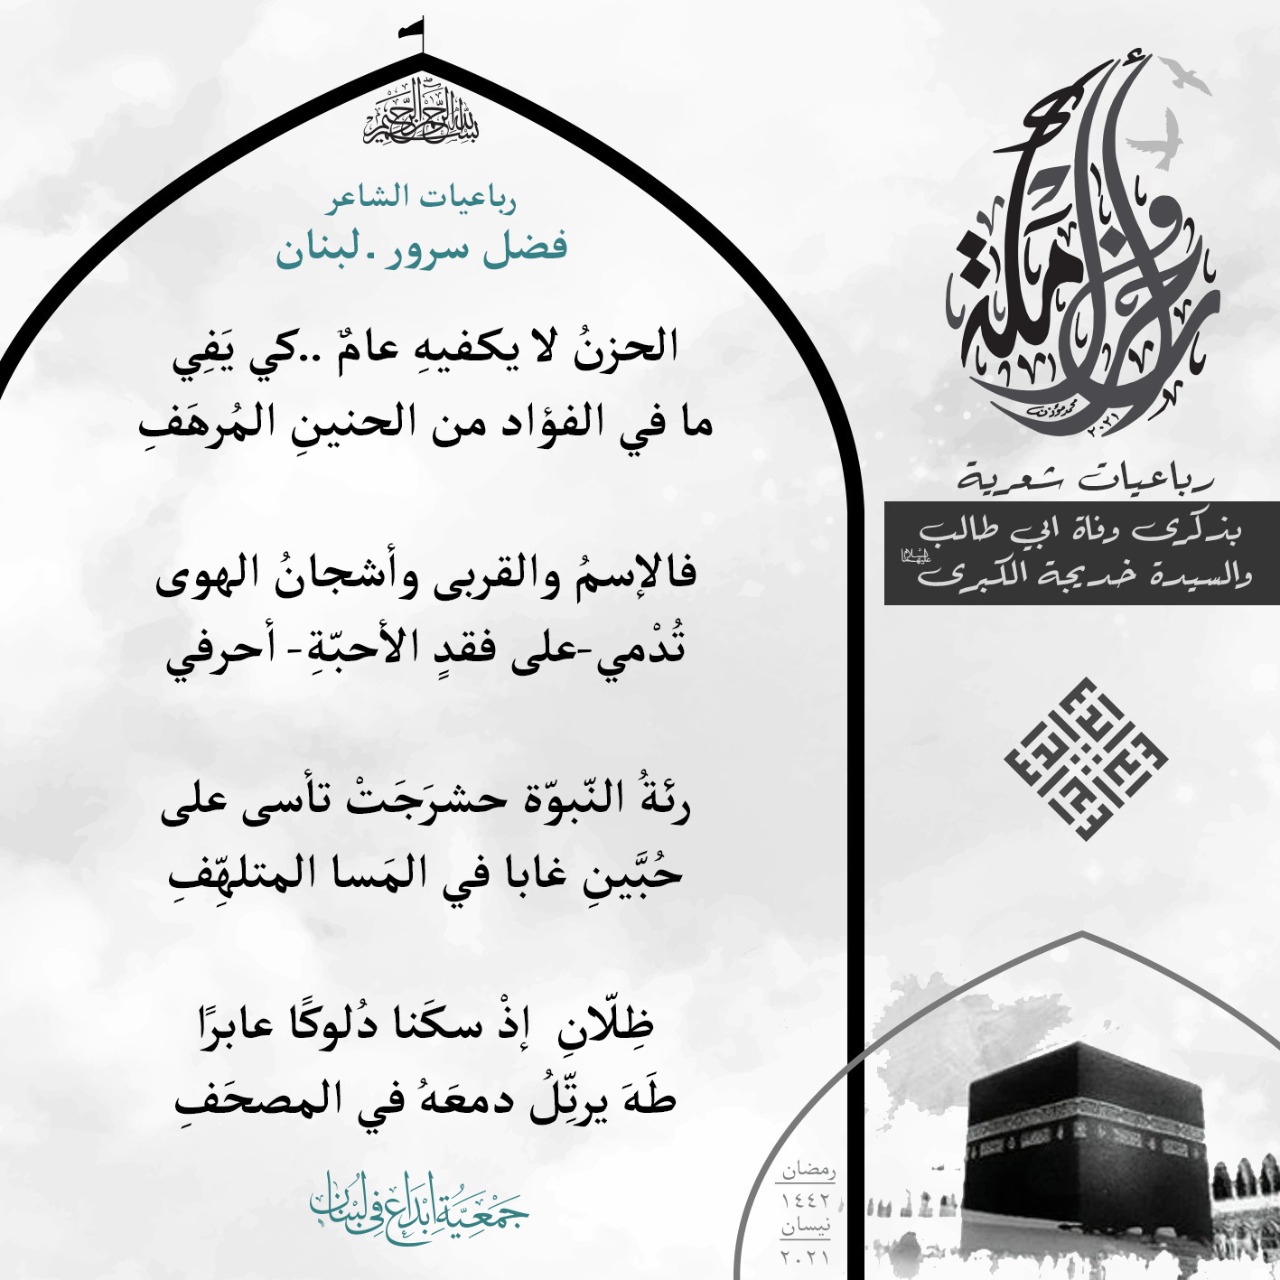 بسم الله الرحمن الرحيم
رباعيات الشاعر
فضل سرور .لبنان
الحزنُ لا يكفيهِ عامٌ ..كي يَفِي
ما في الفؤاد من الحنينِ المُرهَفِ
فالإسمُ والقربى وأشجانُ الهوى
تُدْمي-على فقدٍ الأحبّةِ- أحرفي
رئةُ النّبوّة حشرَجَتْ تأسى على
حُبَّينِ غابا في المَسا المتلهِّفِ
ظِلّانِ إذْ سكَنا دُلوكًا عابرًا
طَهَ يرتِّلُ دمعَهُ في المصحَفِ
جَمْعِيَّةُ إبْدَاع في لبْنَان
محمد مؤذن
٢٠٢١
رباعيات شعرية
بذكرى وفاة ابي طالب
والسيدة خديجة الكبرى عليهما السلام
رمضان
١٤٤٢
نيسان
٢٠٢١